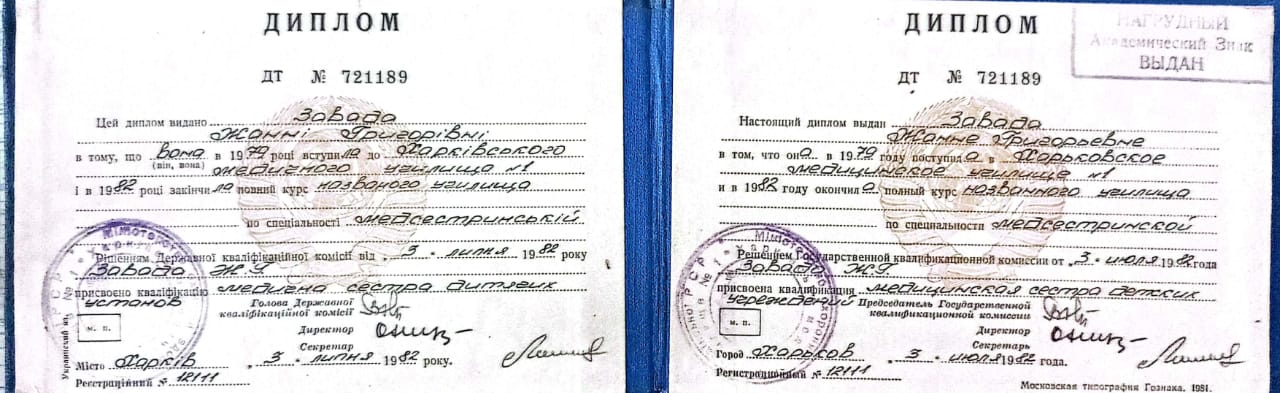 ДИПЛОМ
ДТ № 721189
Цей диплом видано Завада
Жанні Григорівні
в тому, що вона в 1979 році вступила до Харківського
(він, вона)
медичного училища №1
і в 1982 році закінчила повний курс названого училища
по спеціальності медсестринській
Рішенням Державної кваліфікаційної комісії від „3" липня 1982 року
Завада Ж.Г.
присвоєно кваліфікацію медична сестра дитячих
установ
Голова Державної
кваліфікаційної комісії
Директор
Секретар
м. п.
Місто Харків „3" липня 1982 року.
Реєстраційний № 12111
ДИПЛОМ
НАГРУДНЫЙ
Академический Знак
ВЫДАН
ДТ № 721189
Настоящий диплом выдан Завада
Жанне Григорьевне
в том, что она в 1979 году поступила в Харьковское
медицинское училище №1
и в 1982 году окончила полный курс названного училища
по специальности медсестринской
Решением Государственной квалификационной комиссии от „3" июля 1982 года
Завада Ж.Г.
присвоена квалификация медицинская сестра детских
учреждений
Председатель Государственной
квалификационной комиссии
Директор
Секретарь
м. п.
Город Харьков „3" июля 1982 года.
Регистрационный № 12111
Московская типография Гознака. 1981.